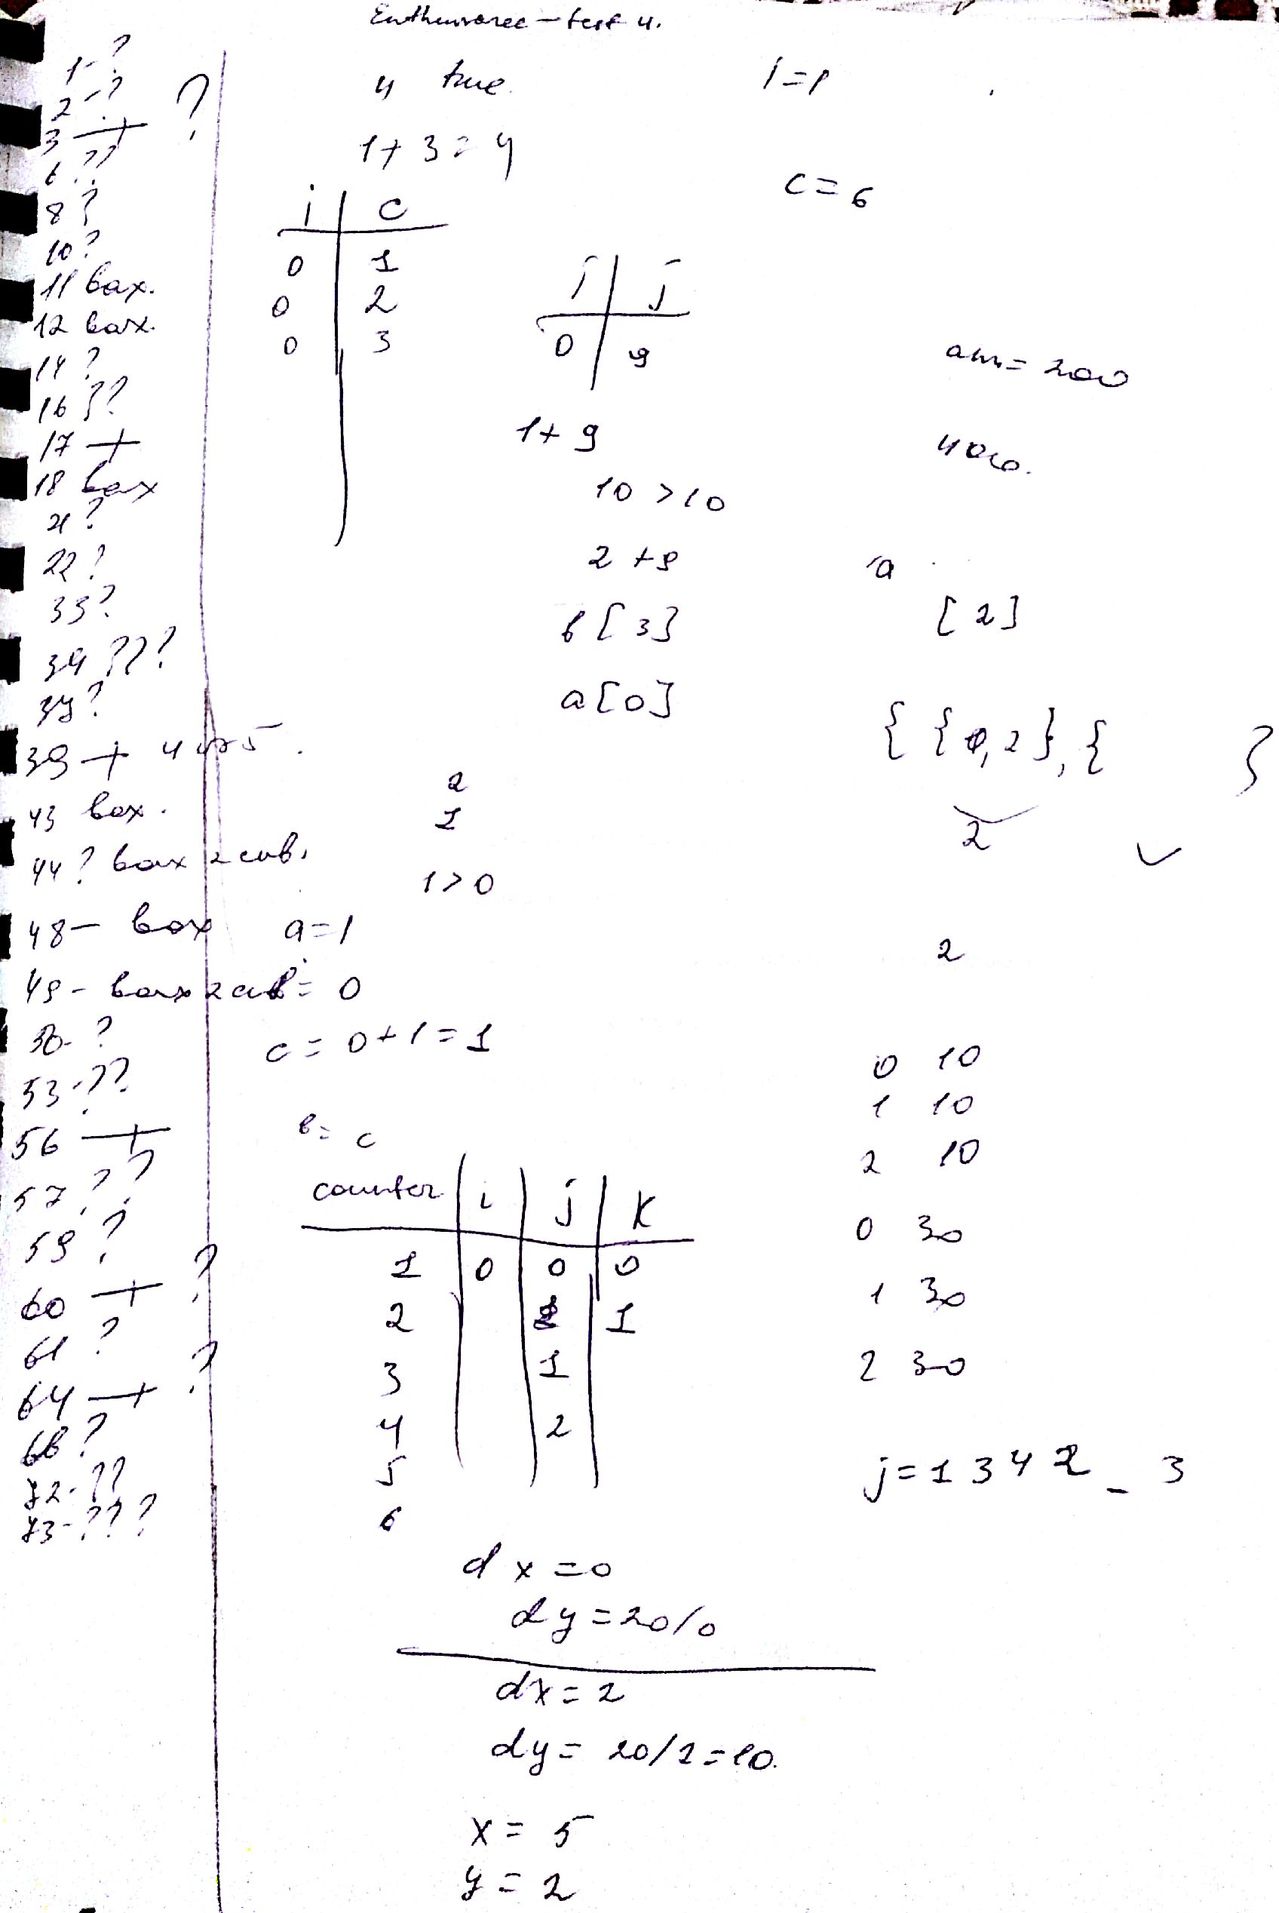 Enthuware - test 4.
1-?
2-?
3 + ?
6 ??
8 ?
10 ?
11 вах.
12 вах.
14 ?
16 ??
17 +
18 вах
21 ?
22 ?
33 ?
34 ???
37 ?
39 +
43 вах.
44 ? вах
48 - вах
49 - вах
50 - ?
53 - ??
56 +
57 ??
59 ?
60 + ?
61 ?
64 + ?
68 ?
72 - ??
73 - ???
4 true.
1 + 3 = 4
i c
0 1
0 2
0 3
i j
0 9
1 + 9
10 > 10
2 + 9
b [3]
a [0]
2
1
1 > 0
a = 1
b = 0
c = 0 + 1 = 1
b = c
counter i j k
1 0 0 0
2 1
3 1
4 2
5
6
dx = 0
dy = 20/0
dx = 2
dy = 20/2 = 10.
x = 5
y = 2
i = 1
c = 6
am = 200
400.
a
[2]
{ {0,2}, { }
2
2
0 10
1 10
2 10
0 30
1 30
2 30
j = 1 3 4 2 - 3